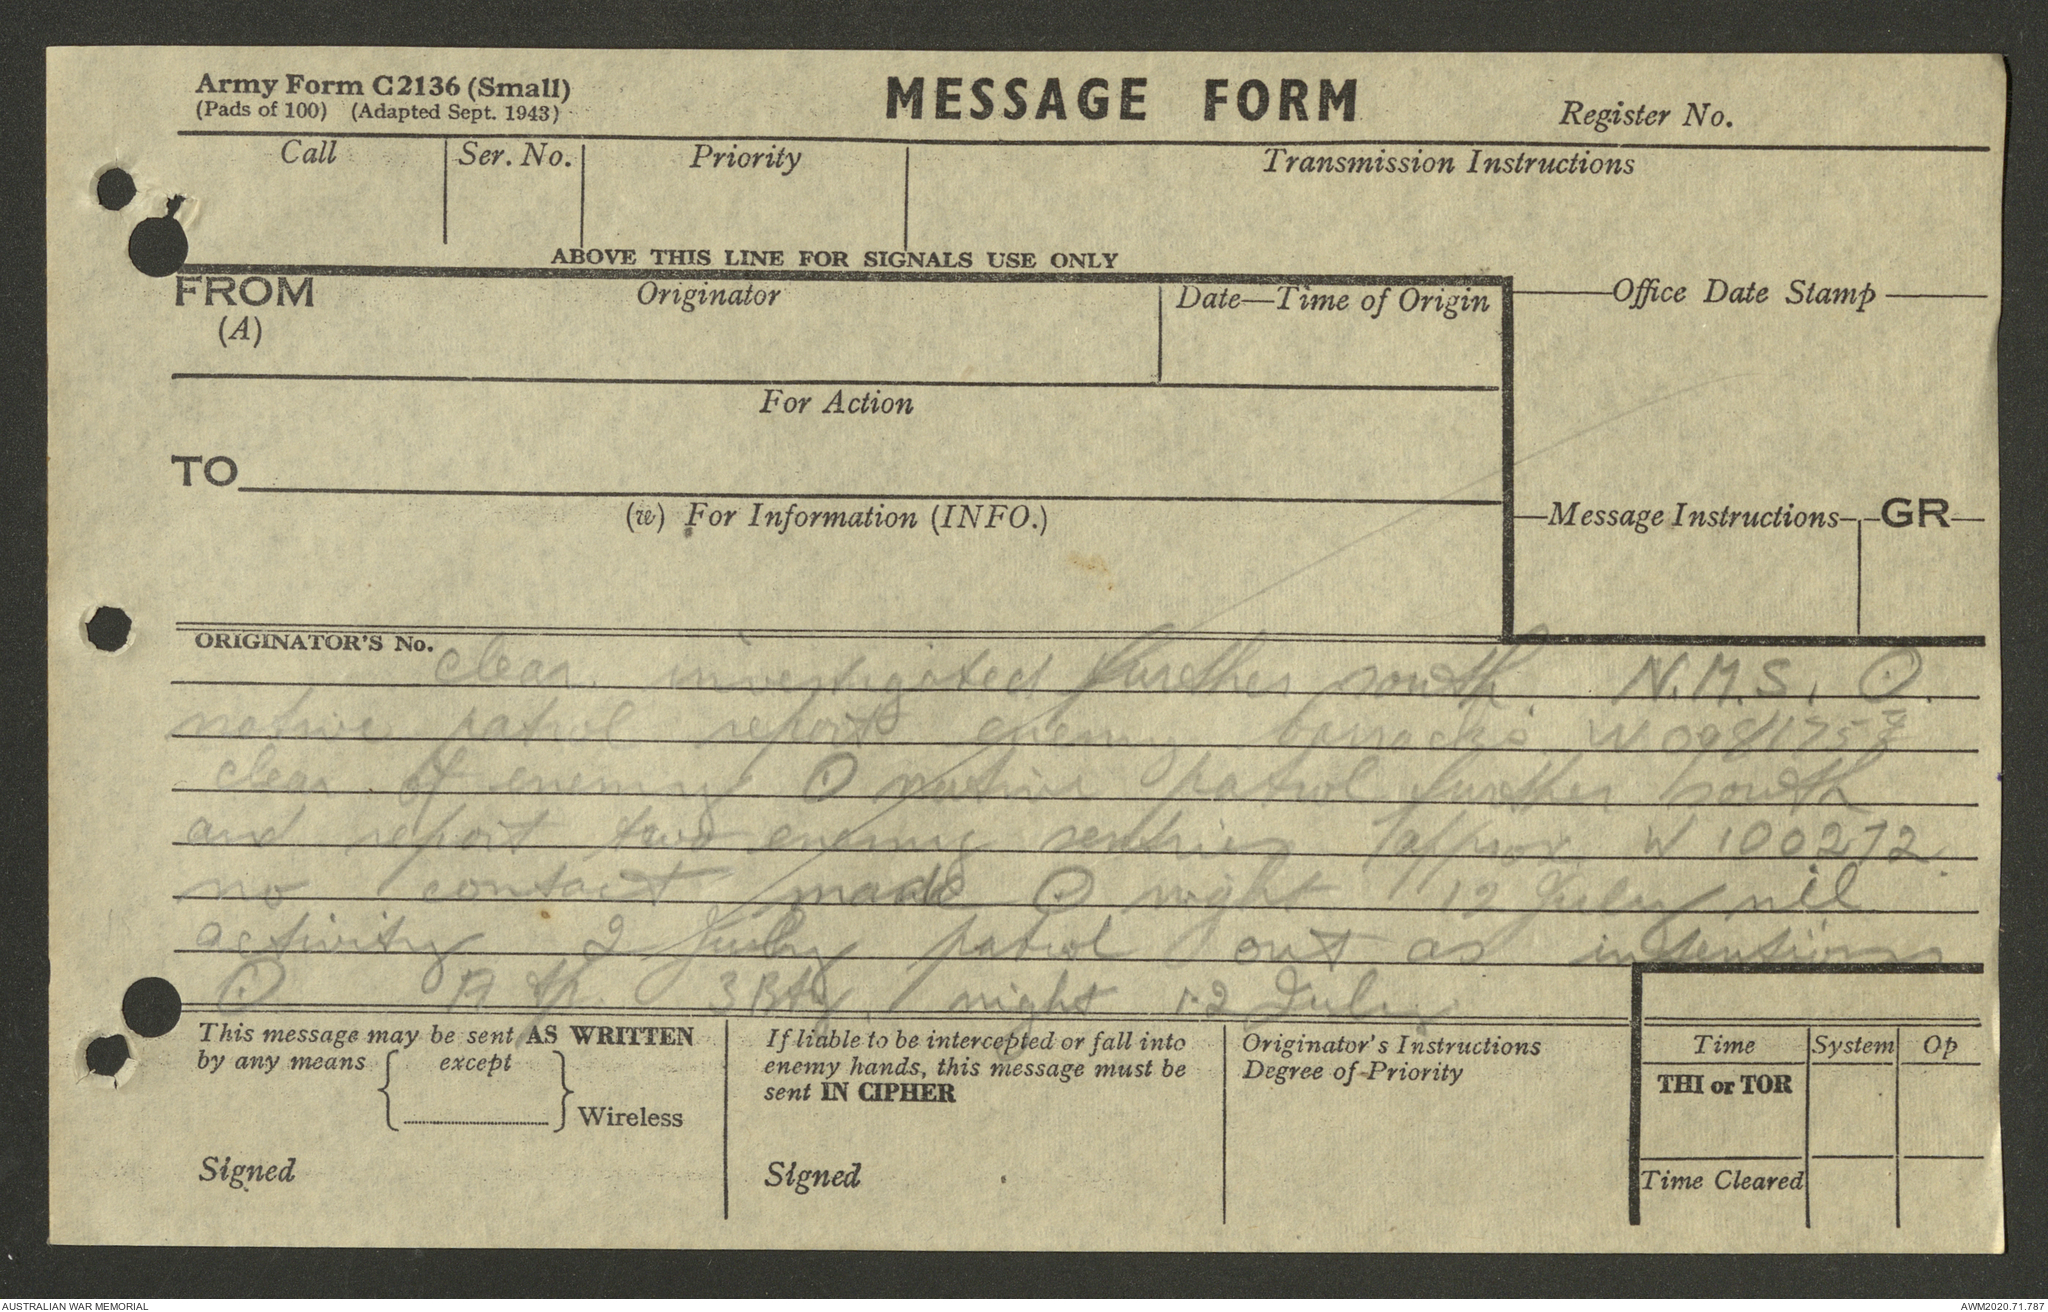 Army Form C2136 (Small)
(Pads of 100) (Adapted Sept. 1943)
MESSAGE FORM
Register No.
Call
Ser. No.
Priority
Transmission Instructions
ABOVE THIS LINE FOR SIGNALS USE ONLY
FROM
(A)
Originator
Date—Time of Origin
Office Date Stamp
For Action
TO
(w) For Information (INFO.)
Message Instructions
GR
ORIGINATOR'S No.
clear. investigated further south. N.M.S. ⊙
native patrol report enemy barracks W
clear of enemy ⊙ native patrol further south
and report two enemy sentries approx. W 100272.
no contact made ⊙ night 12 July nil
activity 2 July patrol out as intentions
⊙ A tp. 3 Bty. night 1-2 July
This message may be sent AS WRITTEN
by any means
except
Wireless
Signed
If liable to be intercepted or fall into
enemy hands, this message must be
sent IN CIPHER
Signed
Originator's Instructions
Degree of Priority
Time
System
Op
THI or TOR
Time Cleared
AUSTRALIAN WAR MEMORIAL
AWM2020.71.787